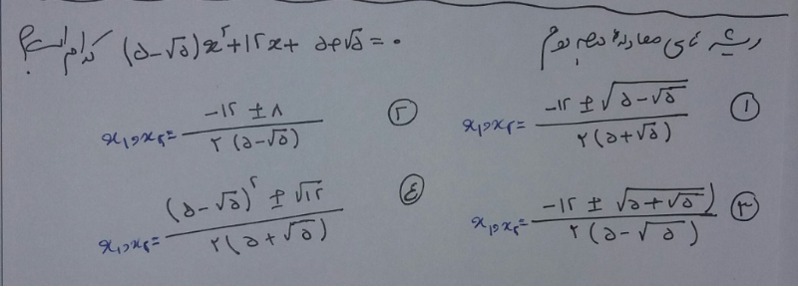 ریشه های معادله درجه دوم (۵-√۵)x²+۱۲x+ ۵+√۵=۰ کدام است؟
① x₁,x₂= (-۱۲ ± √(۵-√۵)) / (۲(۵+√۵))
② x₁,x₂= (-۱۲ ± ۸) / (۲(۵-√۵))
③ x₁,x₂= (-۱۲ ± √(۵+√۵)) / (۲(۵-√۵))
④ x₁,x₂= ((۵-√۵)² ± √۱۲) / (۲(۵+√۵))